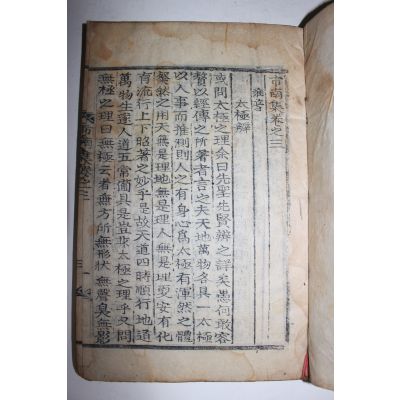 南集卷之三
雜著
太極解
或問太極理余曰先聖先賢辨之詳矣愚何敢容
贅以經傳之所著者言之夫天地萬物各具一太極
以人事而推測則人之有身心爲太極有渾然之體
粲然之用天無是理地無是理人無是理更安有化
有流行上下昭著之妙乎是故天道四時順行地道
萬物生遂人道五常備具是豈非太極之理乎又問
無極之理曰無極云者無方所無形狀無聲臭無影
南集卷之三